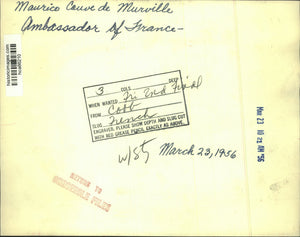 Maurice Couve de Murville
Ambassador of France-
historicimages.com
3 COLS DEEP
WHEN WANTED Fri 2nd
FROM Cobb
SLUG French
ENGRAVER, PLEASE SHOW DEPTH AND SLUG CUT
WITH RED GREASE PENCIL EXACTLY AS ABOVE.
MAR 23 56
W/St
March 23, 1956
RETURN TO
FILES